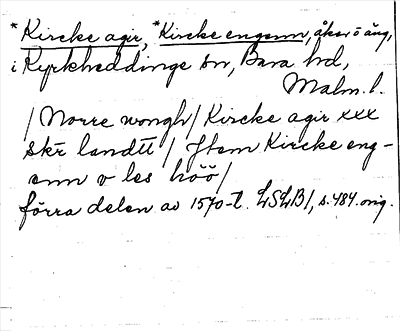 *Kircke agir, *Kircke engenn, åker o äng,
i Kyrkheddinge sn, Bara hd,
Malm. l.
/ Norre wongh / Kircke agir xxx
skr landtt / Jtem Kircke eng-
enn v les höö /
förra delen av 1570-t. LSLB1, s. 484. orig.